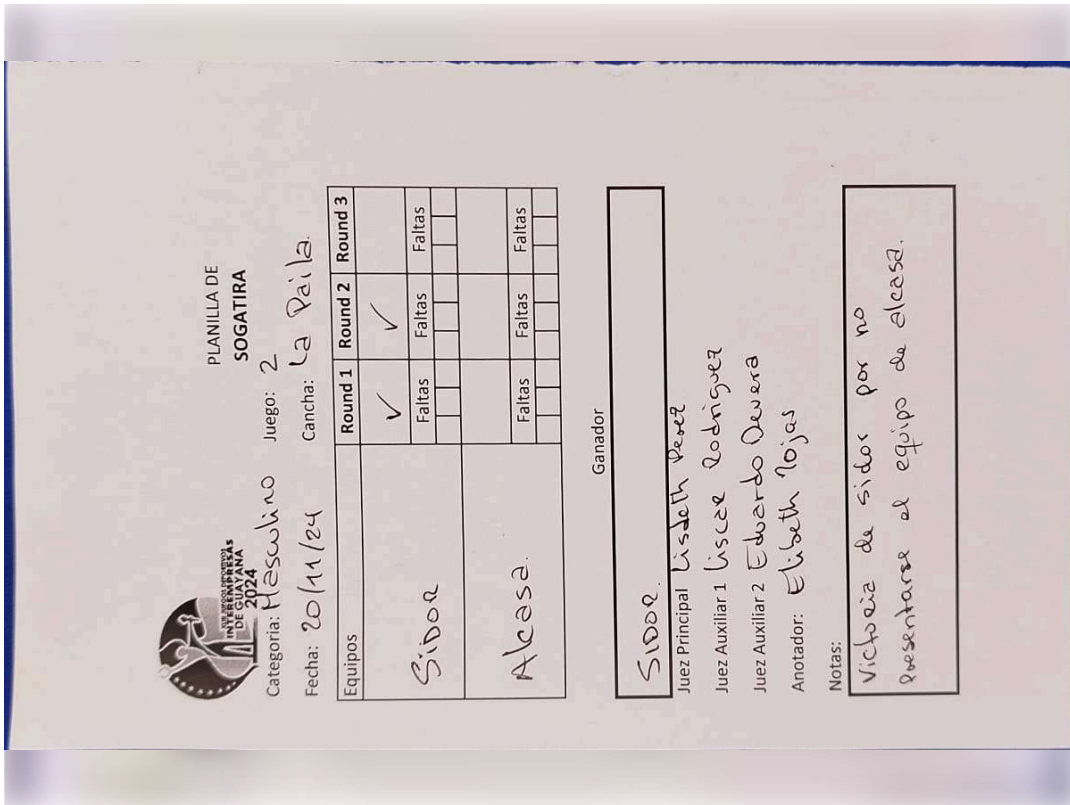 PLANILLA DE
SOGATIRA
XVIII JUEGOS DEPORTIVOS
INTEREMPRESAS
DE GUAYANA
2024
Categoria: Masculino Juego: 2
Fecha: 20/11/24 Cancha: La Paila.
Equipos Round 1 Round 2 Round 3
SIDOR ✓ ✓
Faltas Faltas Faltas
Alcasa.
Faltas Faltas Faltas
Ganador
SIDOR.
Juez Principal Lisbeth Perez
Juez Auxiliar 1 Liscar Rodriguez
Juez Auxiliar 2 Eduardo Devera
Anotador: Elibeth Rojas
Notas:
Victoria de sidor por no
presentarse el equipo de alcasa.